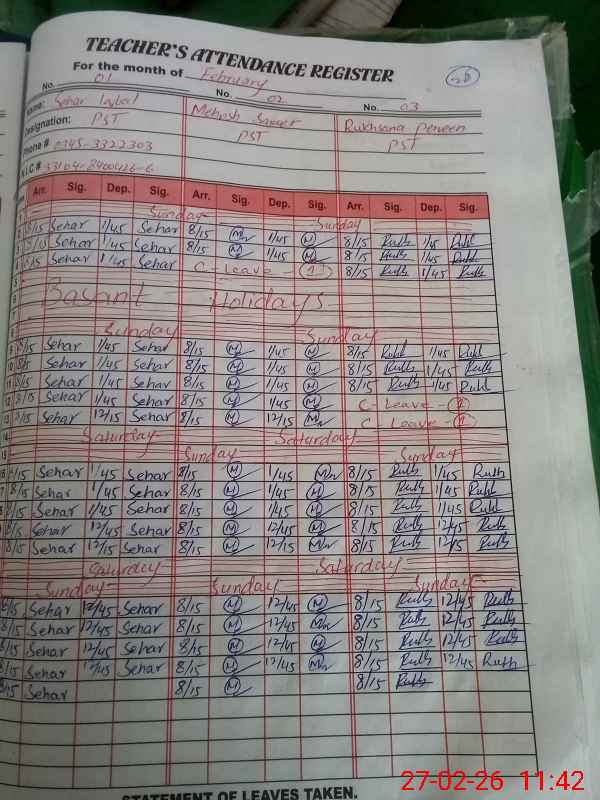 TEACHER'S ATTENDANCE REGISTER
For the month of February
No. 01 No. 02 No. 03
Name: Sehar Iqbal Mehwish Rukhsana Perveen
Designation: PST PST PST
Phone # 0345-3322303
Arr. Sig. Dep. Sig. Arr. Sig. Dep. Sig. Arr. Sig. Dep. Sig.
Sunday Sunday
8/15 Sehar 1/45 Sehar 8/15 M 1/45 M 8/15 Rukh 1/45 Rukh
8/15 Sehar 1/45 Sehar 8/15 M 1/45 M 8/15 Rukh 1/45 Rukh
8/15 Sehar 1/45 Sehar C-Leave - 1 8/15 Rukh 1/45 Rukh
Basant Holidays
Sunday Sunday
9 8/15 Sehar 1/45 Sehar 8/15 M 1/45 M 8/15 Rukh 1/45 Rukh
10 8/15 Sehar 1/45 Sehar 8/15 M 1/45 M 8/15 Rukh 1/45 Rukh
11 8/15 Sehar 1/45 Sehar 8/15 M 1/45 M 8/15 Rukh 1/45 Rukh
12 8/15 Sehar 1/45 Sehar 8/15 M 1/45 M C-Leave -
13 8/15 Sehar 12/15 Sehar 8/15 M 12/15 M C-Leave -
14 Saturday Saturday
15 Sunday Sunday
16 8/15 Sehar 1/45 Sehar 8/15 M 1/45 M 8/15 Rukh 1/45 Rukh
17 8/15 Sehar 1/45 Sehar 8/15 M 1/45 M 8/15 Rukh 1/45 Rukh
8/15 Sehar 1/45 Sehar 8/15 M 1/45 M 8/15 Rukh 1/45 Rukh
8/15 Sehar 12/45 Sehar 8/15 M 12/45 M 8/15 Rukh 12/45 Rukh
8/15 Sehar 12/15 Sehar 8/15 M 12/15 M 8/15 Rukh 12/15 Rukh
Saturday Saturday
Sunday Sunday Sunday
8/15 Sehar 12/45 Sehar 8/15 M 12/45 M 8/15 Rukh 12/45 Rukh
8/15 Sehar 12/45 Sehar 8/15 M 12/45 M 8/15 Rukh 12/45 Rukh
8/15 Sehar 12/45 Sehar 8/15 M 12/45 M 8/15 Rukh 12/45 Rukh
8/15 Sehar 12/45 Sehar 8/15 M 12/45 M 8/15 Rukh 12/45 Rukh
8/15 Sehar 8/15 M 8/15 Rukh
STATEMENT OF LEAVES TAKEN.
27-02-26 11:42